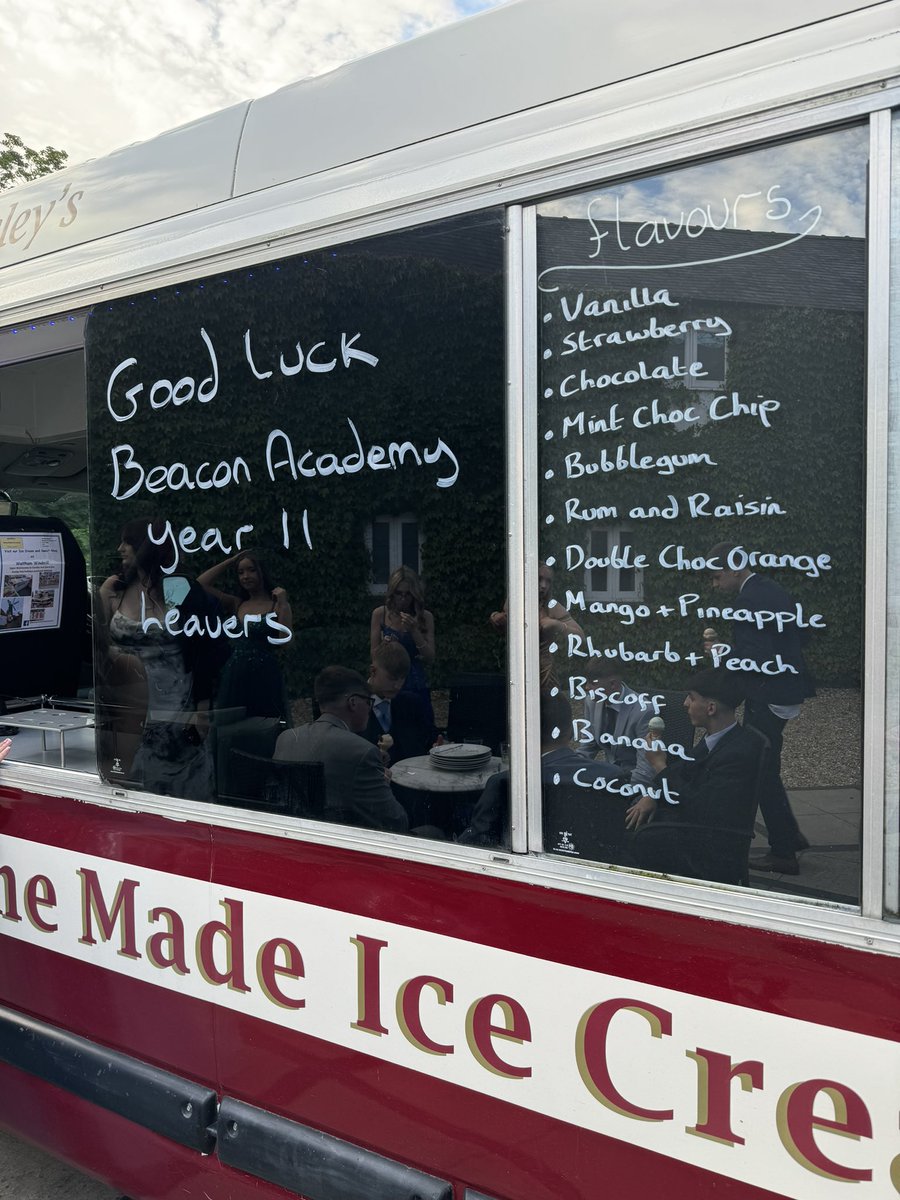 ley's
Good Luck
Beacon Academy
year 11
leavers
flavours
• Vanilla
• Strawberry
• Chocolate
• Mint Choc Chip
• Bubblegum
• Rum and Raisin
• Double Choc Orange
• Mango + Pineapple
• Rhubarb + Peach
• Biscoff
• Banana
• Coconut
Waltham Windmill
me Made Ice Crea